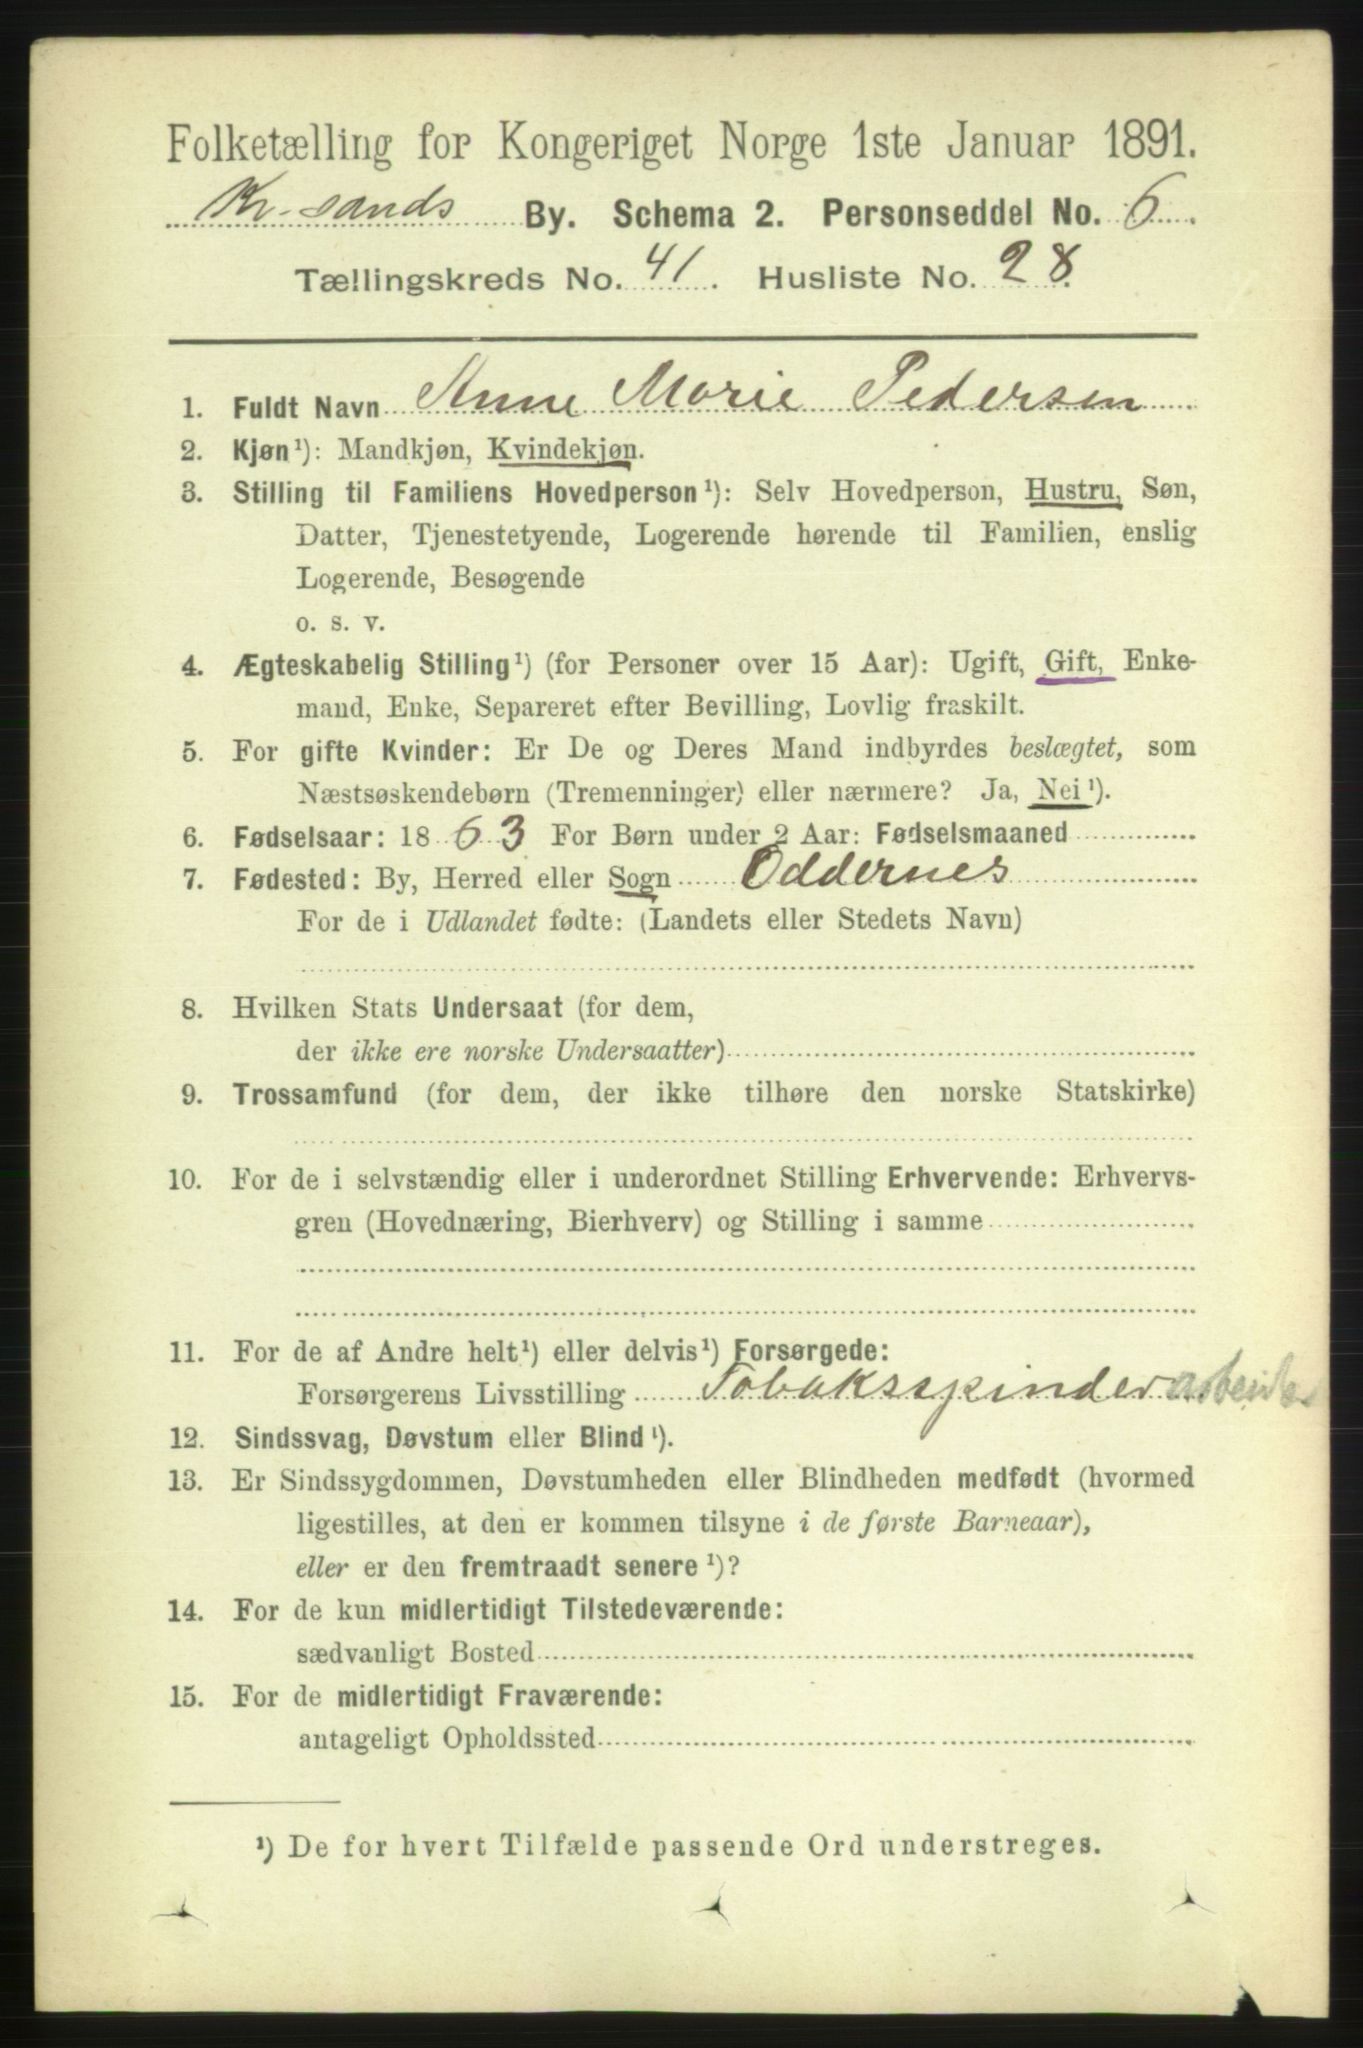 Folketælling for Kongeriget Norge 1ste Januar 1891.
Kr.sands By. Schema 2. Personseddel No. 6.
Tællingskreds No. 41. Husliste No. 28.
1. Fuldt Navn Anne Marie Pedersen
2. Kjøn¹): Mandkjøn, Kvindekjøn.
3. Stilling til Familiens Hovedperson¹): Selv Hovedperson, Hustru, Søn,
Datter, Tjenestetyende, Logerende hørende til Familien, enslig
Logerende, Besøgende
o. s. v.
4. Ægteskabelig Stilling¹) (for Personer over 15 Aar): Ugift, Gift, Enke-
mand, Enke, Separeret efter Bevilling, Lovlig fraskilt.
5. For gifte Kvinder: Er De og Deres Mand indbyrdes beslægtet, som
Næstsøskendebørn (Tremenninger) eller nærmere? Ja, Nei¹).
6. Fødselsaar: 1863 For Børn under 2 Aar: Fødselsmaaned
7. Fødested: By, Herred eller Sogn Oddernes
For de i Udlandet fødte: (Landets eller Stedets Navn)
8. Hvilken Stats Undersaat (for dem,
der ikke ere norske Undersaatter)
9. Trossamfund (for dem, der ikke tilhøre den norske Statskirke)
10. For de i selvstændig eller i underordnet Stilling Erhvervende: Erhvervs-
gren (Hovednæring, Bierhverv) og Stilling i samme
11. For de af Andre helt¹) eller delvis¹) Forsørgede:
Forsørgerens Livsstilling Tobaksspinder arbeider
12. Sindssvag, Døvstum eller Blind¹).
13. Er Sindssygdommen, Døvstumheden eller Blindheden medfødt (hvormed
ligestilles, at den er kommen tilsyne i de første Barneaar),
eller er den fremtraadt senere¹)?
14. For de kun midlertidigt Tilstedeværende:
sædvanligt Bosted
15. For de midlertidigt Fraværende:
antageligt Opholdssted
¹) De for hvert Tilfælde passende Ord understreges.